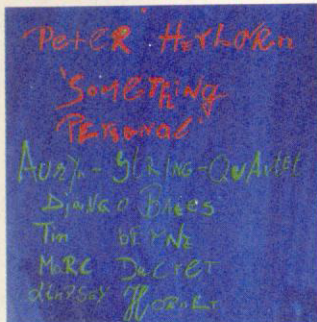 PeteR HeRboRn
'SomEThiNg
PERsonal'
AuRyn-StRiNg-QuARtet
DjaNGo Bates
Tim bERNE
MaRC DucReT
LindSay HoRneR